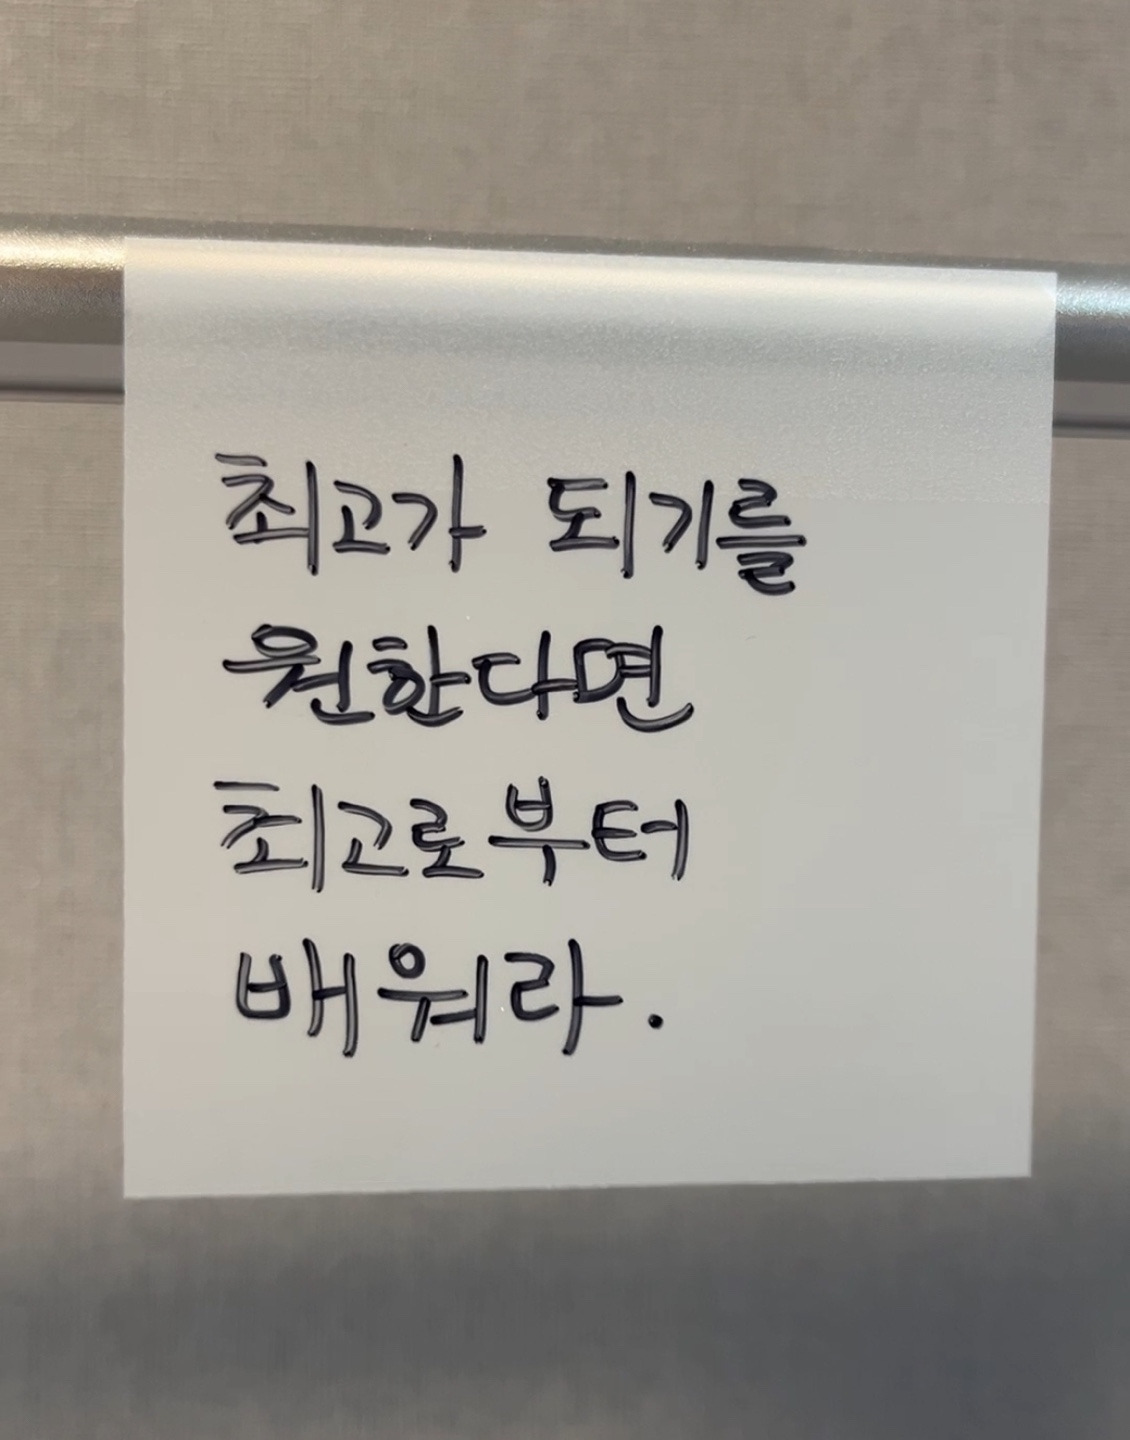 최고가 되기를
원한다면
최고로부터
배워라.